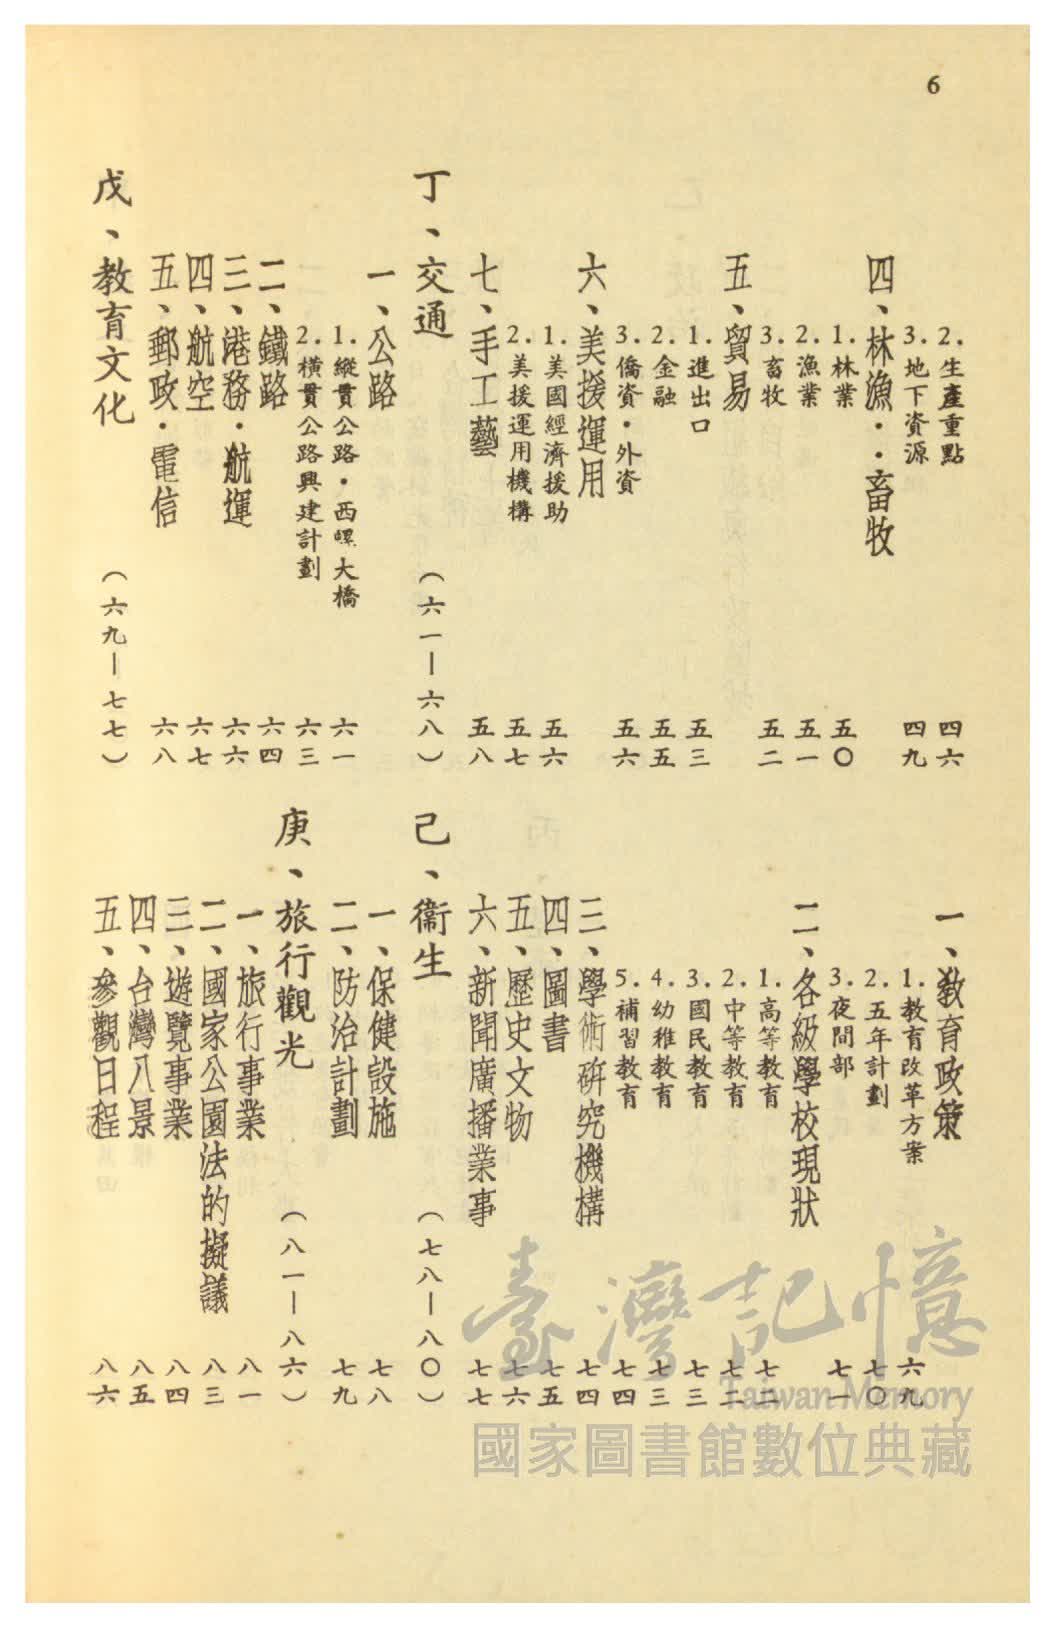 6
2.生產重點 四六
3.地下資源 四九
四、林漁・・畜牧
1.林業 五〇
2.漁業 五一
3.畜牧 五二
五、貿易
1.進出口 五三
2.金融 五五
3.僑資・外資 五六
六、美援運用
1.美國經濟援助 五六
2.美援運用機構 五七
七、手工藝 五八
丁、交通 （六一—六八）
一、公路
1.縱貫公路・西螺大橋 六一
2.橫貫公路興建計劃 六三
二、鐵路 六四
三、港務・航運 六六
四、航空 六七
五、郵政・電信 六八
戊、教育文化 （六九—七七）
一、教育政策
1.教育改革方案 六九
2.五年計劃 七〇
3.夜間部 七一
二、各級學校現狀
1.高等教育 七二
2.中等教育 七二
3.國民教育 七三
4.幼稚教育 七三
5.補習教育 七四
三、學術研究機構 七四
四、圖書 七五
五、歷史文物 七六
六、新聞廣播業事 七七
己、衞生 （七八—八〇）
一、保健設施 七八
二、防治計劃 七九
庚、旅行觀光 （八一—八六）
一、旅行事業 八一
二、國家公園法的擬議 八三
三、遊覽事業 八四
四、台灣八景 八五
五、參觀日程 八六
臺灣記憶
Taiwan Memory
國家圖書館數位典藏